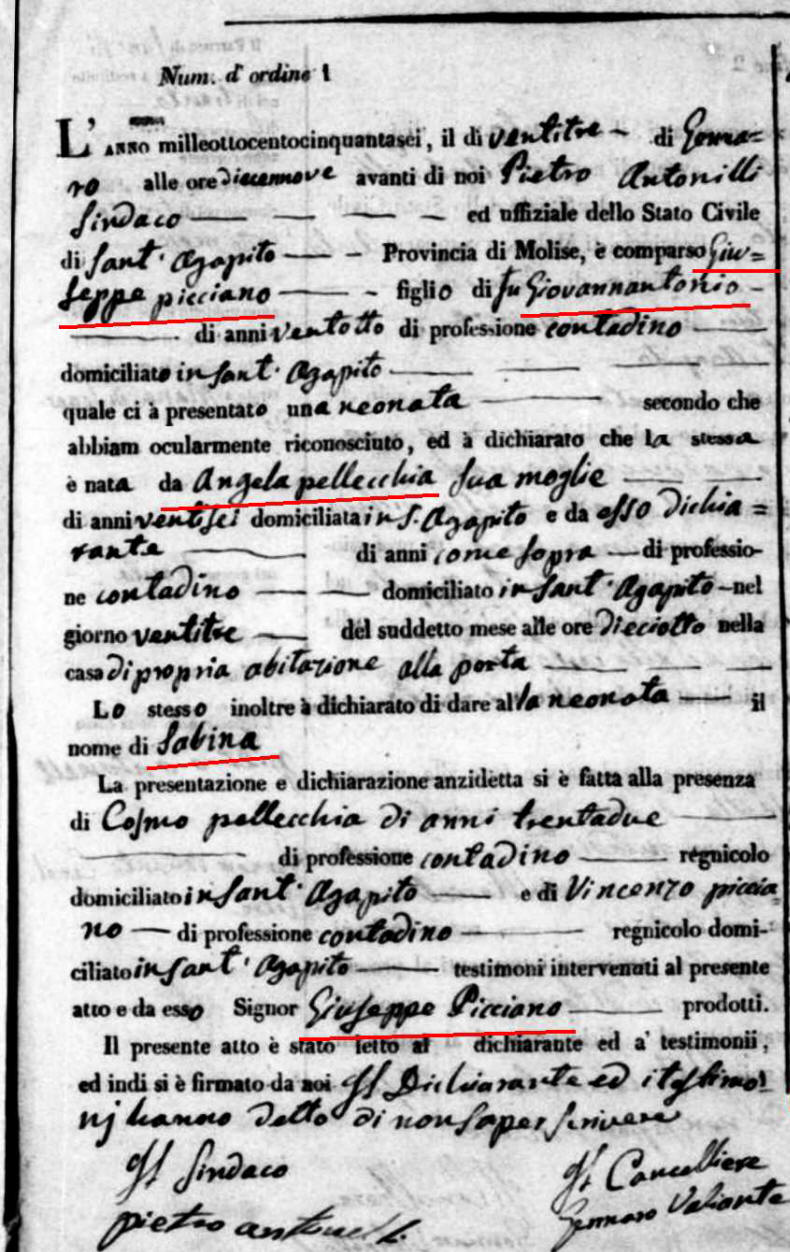 Num. d' ordine 1
L' ANNO milleottocentocinquantasei, il dì ventitre di Genna=
ro alle ore diecennove avanti di noi Pietro Antonilli
Sindaco ed uffiziale dello Stato Civile
di Sant' Agapito Provincia di Molise, è comparso Giu=
seppe picciano figlio di fu Giovannantonio
di anni ventotto di professione contadino
domiciliato in Sant' Agapito
quale ci à presentato una neonata secondo che
abbiam ocularmente riconosciuto, ed à dichiarato che la stessa
è nata da Angela pellecchia sua moglie
di anni ventisei domiciliata in S. Agapito e da esso dichia=
rante di anni come sopra di professio-
ne contadino domiciliato in Sant' Agapito nel
giorno ventitre del suddetto mese alle ore dieciotto nella
casa di propria abitazione alla porta
Lo stesso inoltre à dichiarato di dare alla neonata il
nome di Sabina
La presentazione e dichiarazione anzidetta si è fatta alla presenza
di Cosmo pellecchia di anni trentadue
di professione contadino regnicolo
domiciliato in Sant' Agapito e di Vincenzo piccia
no di professione contadino regnicolo domi-
ciliato in Sant' Agapito testimoni intervenuti al presente
atto e da esso Signor Giuseppe Picciano prodotti.
Il presente atto è stato letto al dichiarante ed a' testimonii,
ed indi si è firmato da noi Il Dichiarante ed i testimo
nj hanno detto di non saper scrivere
Il Sindaco Il Cancelliere
pietro antonelli Gennaro Valiante